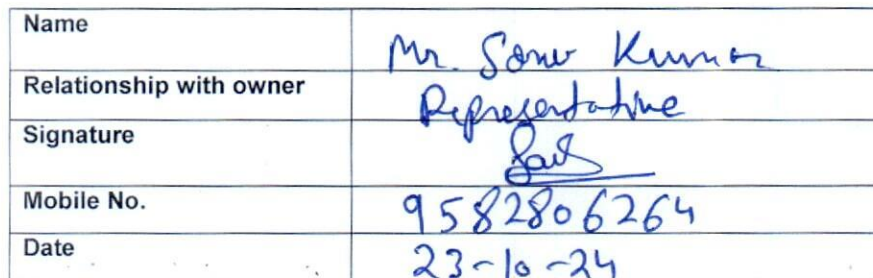 Name Mr. Sonu Kumar
Relationship with owner Representative
Signature
Mobile No. 9582806264
Date 23-10-24